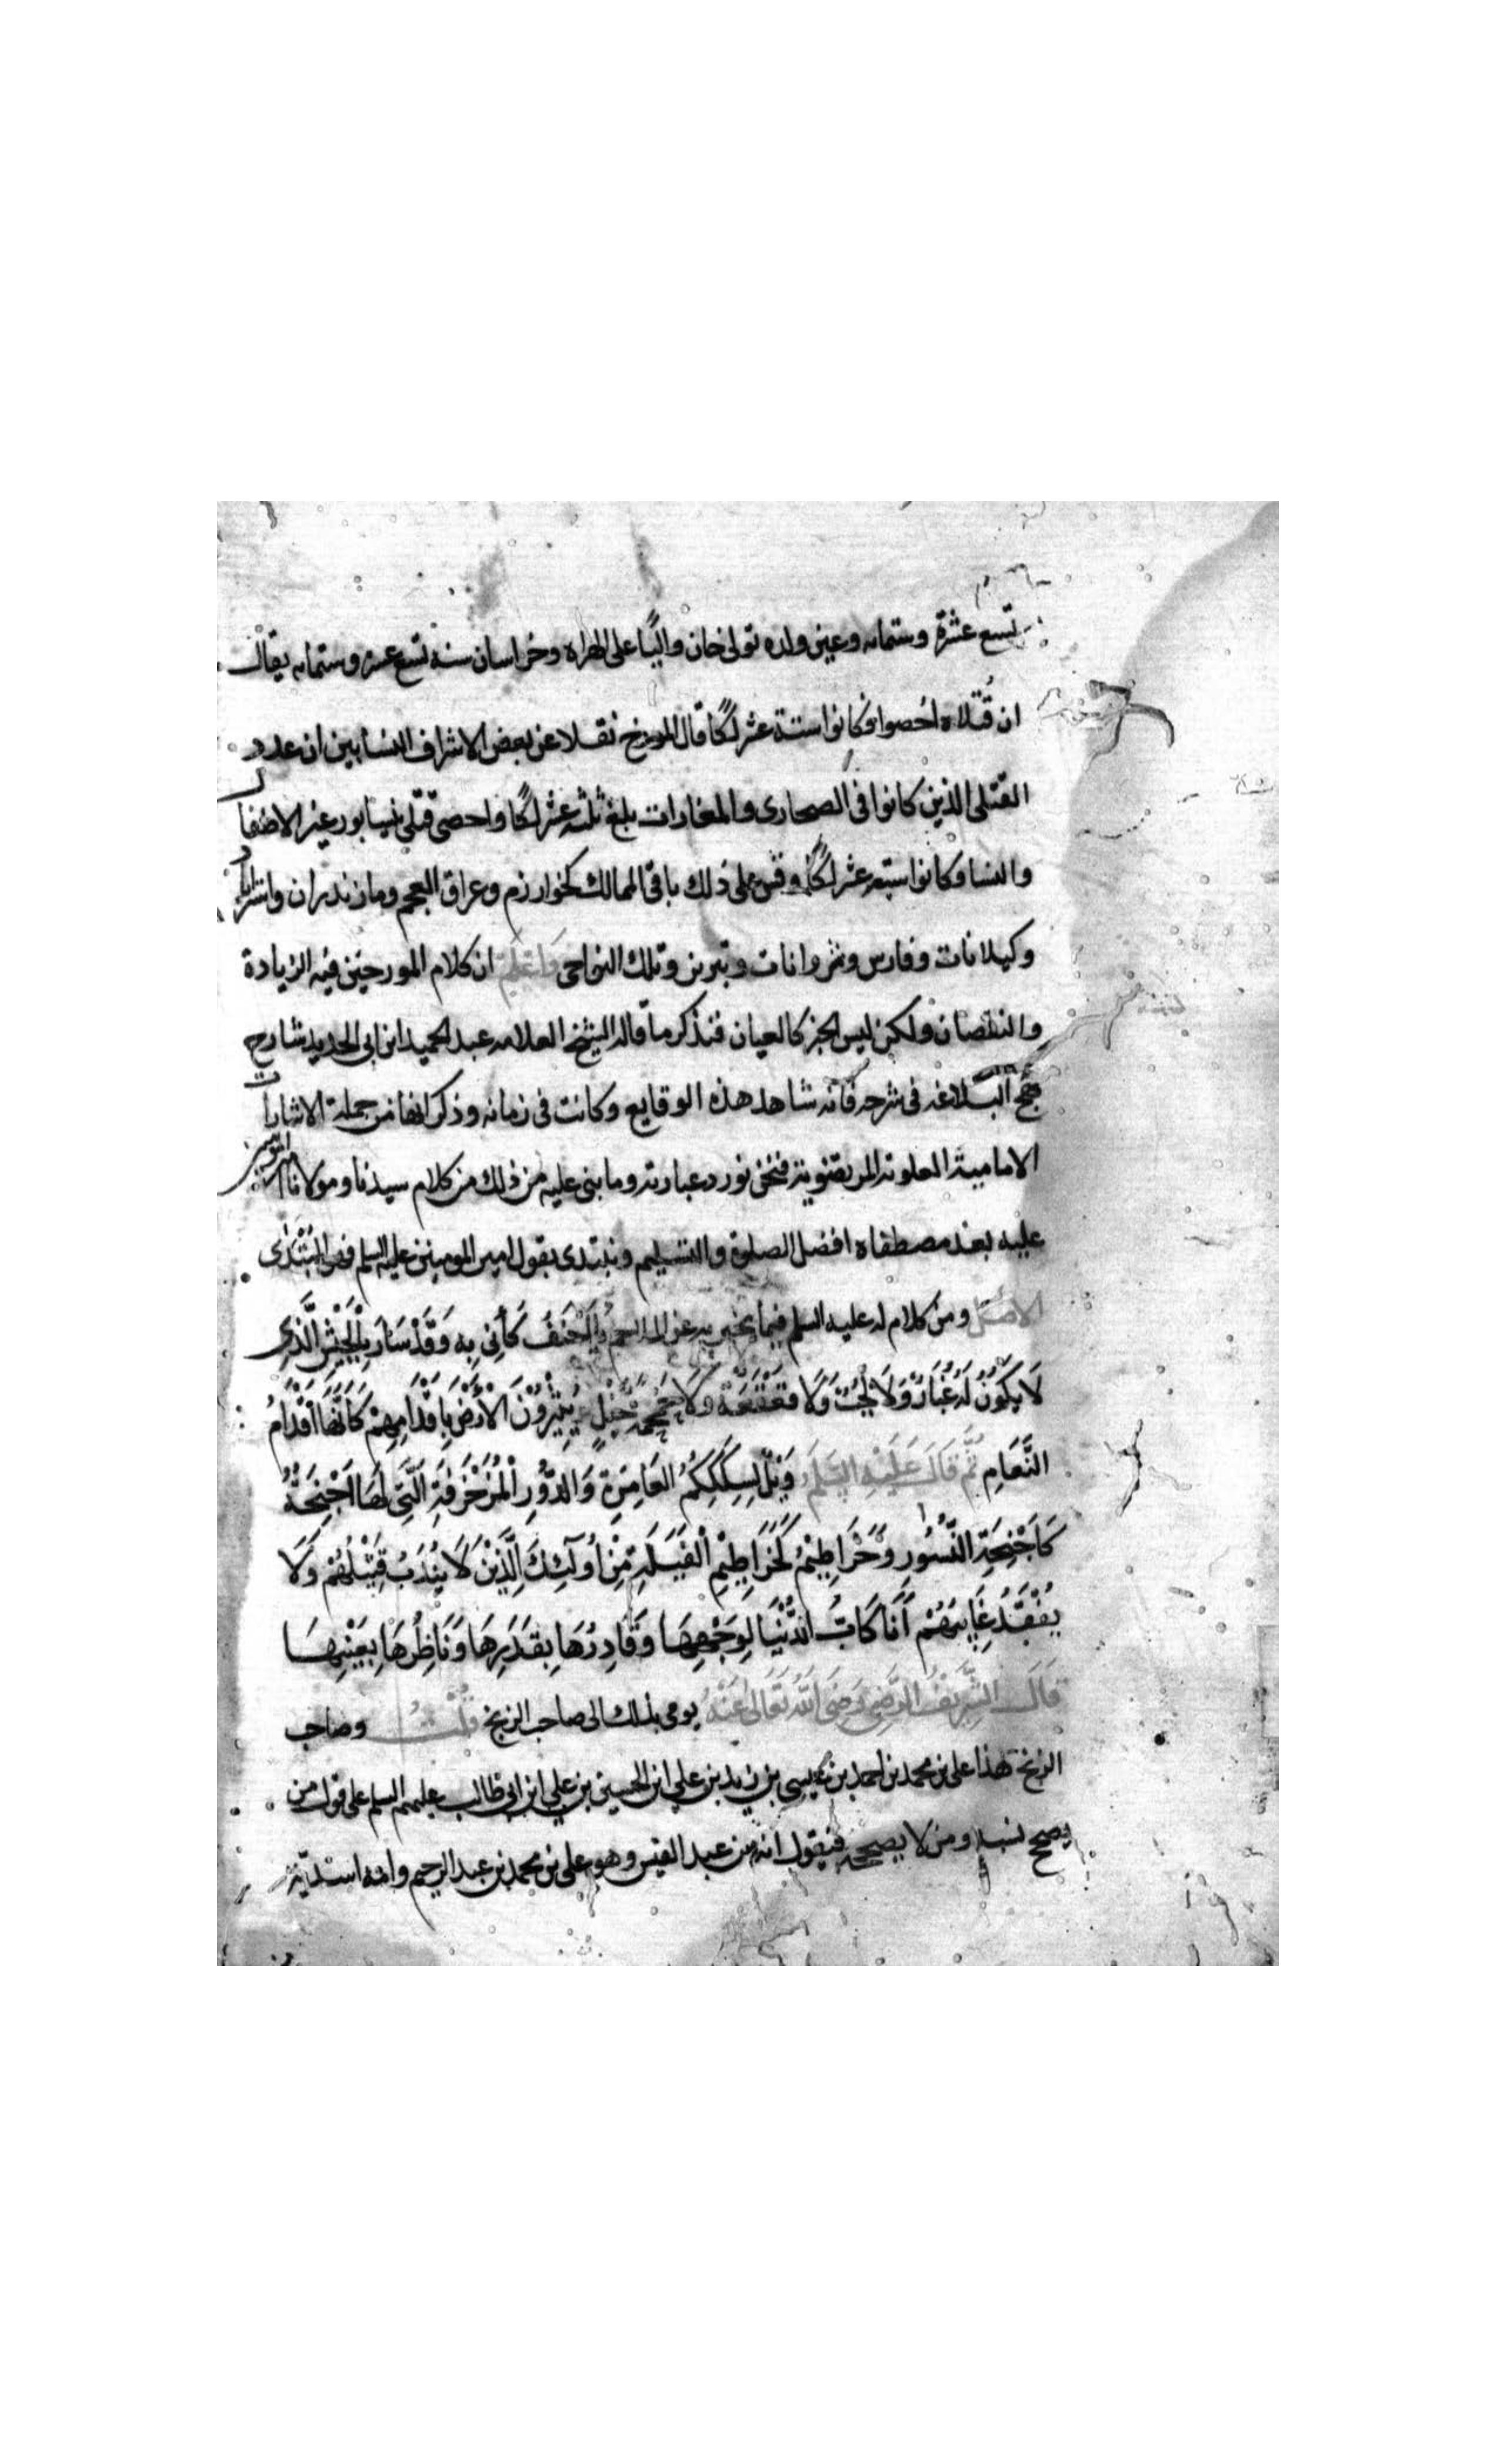 تسع عشرة وستمايه وعين ولده تولى خان واليًا على الهراة وخراسان سنه تسع عشره وستمايه يقال
ان قُتلاه احصوا فكانوا ستة عشر لكًا قال المورخ نقلا عن بعض الاشراف النسابين ان عدد
القتلى الذين كانوا فى الصحارى والمغارات بلغ ثلثه عشر لكًا واحصى قتلى نيسابور غير الاطفال
والنسا وكانوا سبعه عشر لكًا وقس على ذلك باقى الممالك كخوارزم وعراق العجم ومازندران واستراباد
وكيلانات وفارس وشروانات وتبريز وتلك النواحى وَاعْلَم ان كلام المورخين فيه الزيادة
والنقصان ولكن ليس الخبر كالعيان فنذكر ما قاله الشيخ العلامه عبد الحميد ابن ابى الحديد شارح
نهج البلاغه فى شرحه فانه شاهد هذه الوقايع وكانت فى زمانه وذكر انها من جملة الاشارات
الامامية العلويه المرتضويه فنحن نورد عبارته وما بنى عليه من ذلك من كلام سيدنا ومولانا امير المومنين
عليه بعد مصطفاه افضل الصلوة والتسليم ونبتدى بقول امير المومنين عليه السلم فهو المُبْتَدٰى
الاصْل ومن كلام له عليه السلم فيما يخبر به عن الملاحم يَا اَحْنَفُ كَأَنِّى بِهِ وَقَدْ سَارَ بِالْجَيْشِ الَّذِى
لَا يَكُوْنُ لَهُ غُبَارٌ وَلَا لَجَبٌ وَلَا قَعْقَعَةُ وَلَا حَمْحَمَةُ خَيْلٍ يُثِيْرُوْنَ الْاَرْضَ بِاَقْدَامِهِمْ كَاَنَّهَا اَقْدَامُ
النَّعَامِ ثُمَّ قَالَ عَلَيْهِ السَّلَم وَيْلٌ لِسِكَكِكُمُ العَامِرَةِ وَالدُّوْرِ الْمُزَخْرَفَةِ الَّتِى لَهَا اَجْنِحَةٌ
كَاَجْنِحَةِ النُّسُوْرِ وَخَرَاطِيْمُ كَخَرَاطِيْمِ الْفِيَلَةِ مِنْ اُولٰئِكَ الَّذِيْنَ لَا يُنْدَبُ قَتِيْلُهُمْ وَلَا
يُفْقَدُ غَائِبُهُمْ اَنَا كَابُّ الدُّنْيَا لِوَجْهِهَا وَقَادِرُهَا بِقَدَرِهَا وَنَاظِرُهَا بِعَيْنِهَا
قَالَ الشَّرِيْفُ الرَّضِىُّ رَضِىَ اللّٰهُ تَعَالٰى عَنْهُ يومى بذلك الى صاحب الزنج قُلْتُ وصاحب
الزنج هذا على بن محمد بن احمد بن عيسى بن زيد بن على ابن الحسين بن على ابن ابى طالب عليهم السلم على قول من
يصحح نسبه ومن لا يصححه فيقول انه من عبد القيس وهو على بن محمد بن عبد الرحيم وامه اسديّة